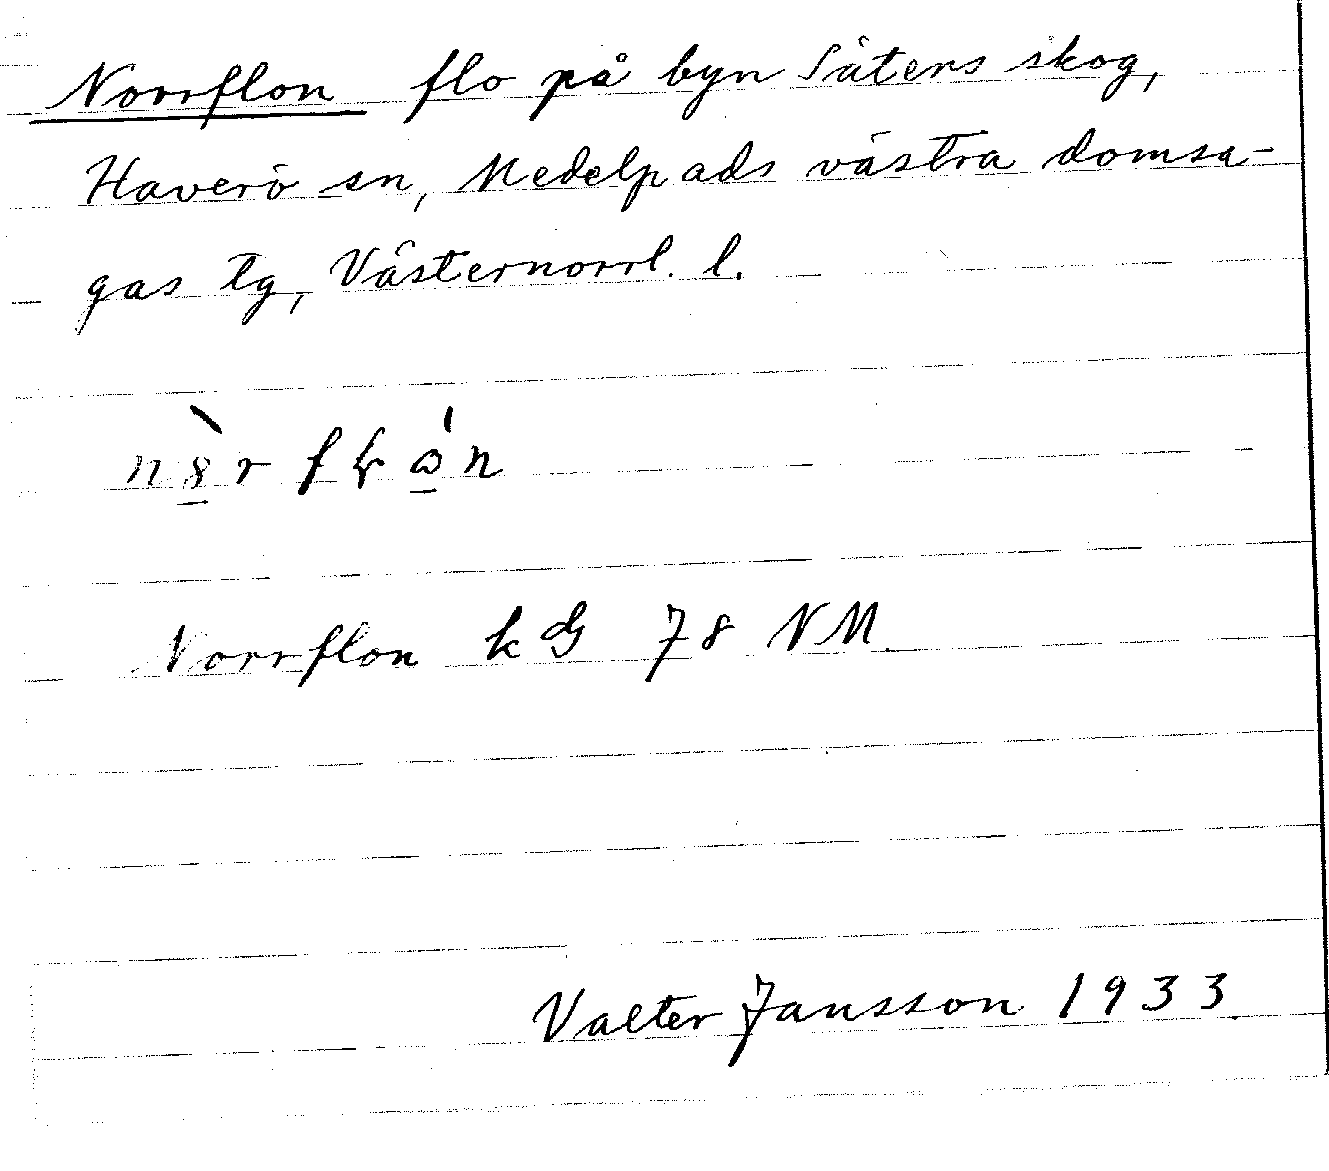 Norrflon flo på byn Säters skog,
Haverö sn, Medelpads västra domsa-
gas tg, Västernorrl. l.
Norrflon k G 78 NM.
Valter Jansson 1933.